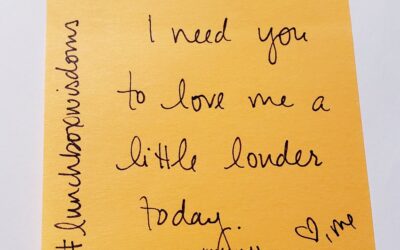 #lunchboxwisdoms
I need you
to love me a
little louder
today.
♡, me